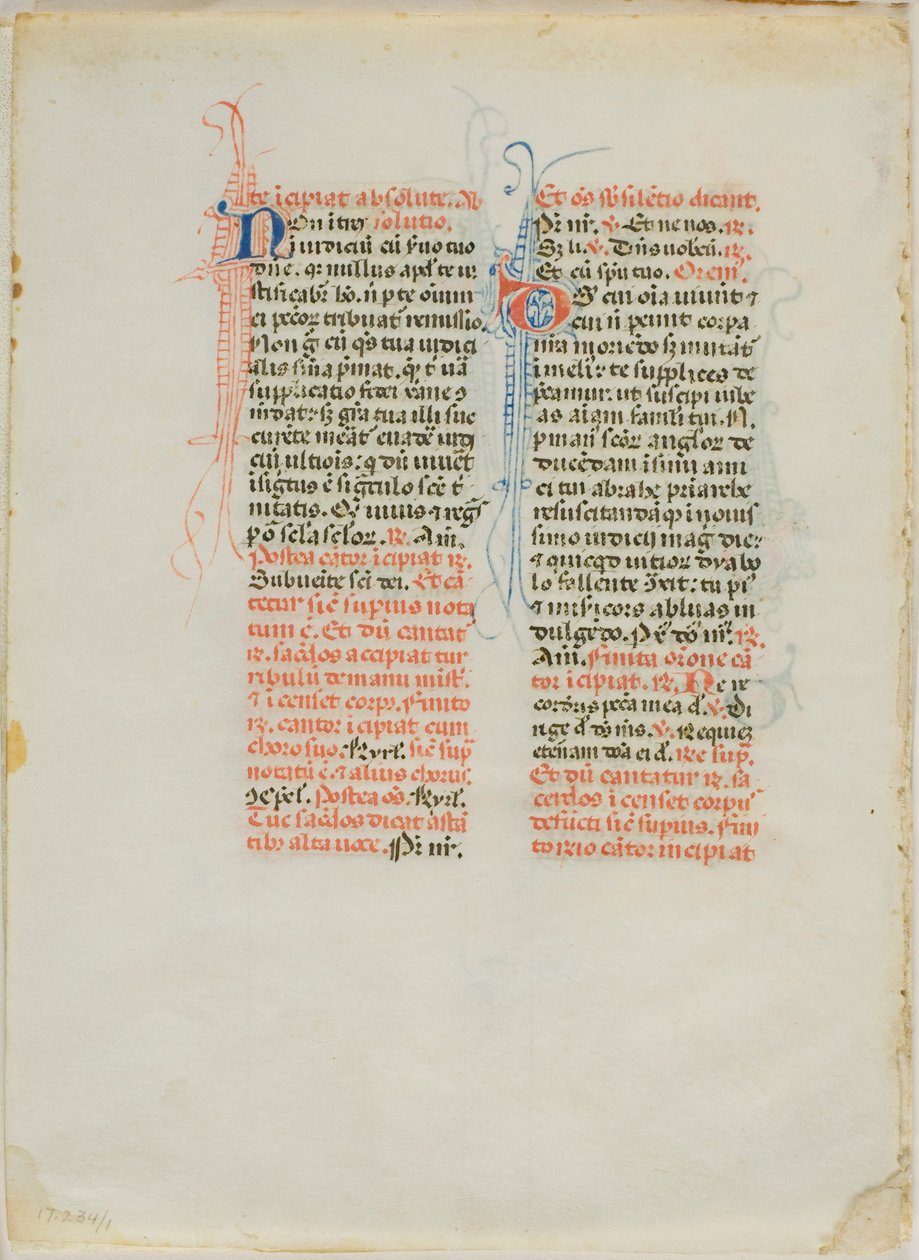 te īcipiat absolute. Ab
Non ītres solutio.
ī iudiciū cū ẜuo tuo
dn̄e. qr nullus apḋ te iu
stificabr̄ hō. n̄ p te oīum
ei pctōr tribuat̄ remissio.
Non ḡ eū q̄s tua iudici
alis sn̄ia p̄mat. q̄ t̄ uā
supplicatio fidei x̄ane 9
mēdat: sꝫ grā tua illi suc
currēte meāt̄ euadē iudi
ciū ultiois: q̄ dū uiuēt
īsigtus ē siḡculo scē t̄
nitatis. Q̄ uiuis ⁊ regs̄
p ō sc̄la sc̄lor. ℟. Am̄.
Postea cātor īcipiat ℟.
Subueīte sc̄i dei. Et cā
tetur sic̄ supius nota
tum ē. Et dū cantat̄
℟. sac̄dos accipiat tur
ribulū de manu mist̄.
⁊ īcenset corp9. Finito
℟. cantor īcipiat cum
choro suo. Kyrl̄. sic̄ sup̄
notatū ē. ⁊ alius chorus
Xpēl. Postea oēs. Kyrl̄.
Tūc sac̄dos dicat astā
tibꝫ alta uoce. Pr̄ nr̄.
Et oēs sb̄ silētio dicant.
Pr̄ nr̄. ℣. Et ne nos. ℟.
Sꝫ li. ℣. Dn̄s uobcū. ℟.
Et cū spū tuo. Orem9.
Ds̄ cui oīa uiuūt ⁊
cui n̄ pereunt corpa
nr̄a moriēdo sꝫ mutāt̄
ī meli9: te supplices de
p̄camur. ut suscipi iube
as aīam famuli tui. N.
p man9 scōr anglor̄ de
ducēdam ī sinū ami
ci tui abrahe pr̄iarche
resuscitandāqꝫ ī nouis
simo iudicij maḡ die:
⁊ quicqd uitior̄ dyabo
lo fallente 9t̄xit: tu pi9
⁊ misicors abluas in
dulgēdo. P x̄ dō nr̄. ℟.
Am̄. Finita or̄one cā
tor īcipiat. ℟. Ne re
corderis pcc̄a mea d̄. ℣. Di
rige d̄ dō m̄s. ℣. Requiez
eternam dōa ei d̄. Re sup̄.
Et dū cantatur ℟. sa
cerdos īcenset corpus
defūcti sic̄ supius. Fini
to ℟io cātor incipiat
17.234/1